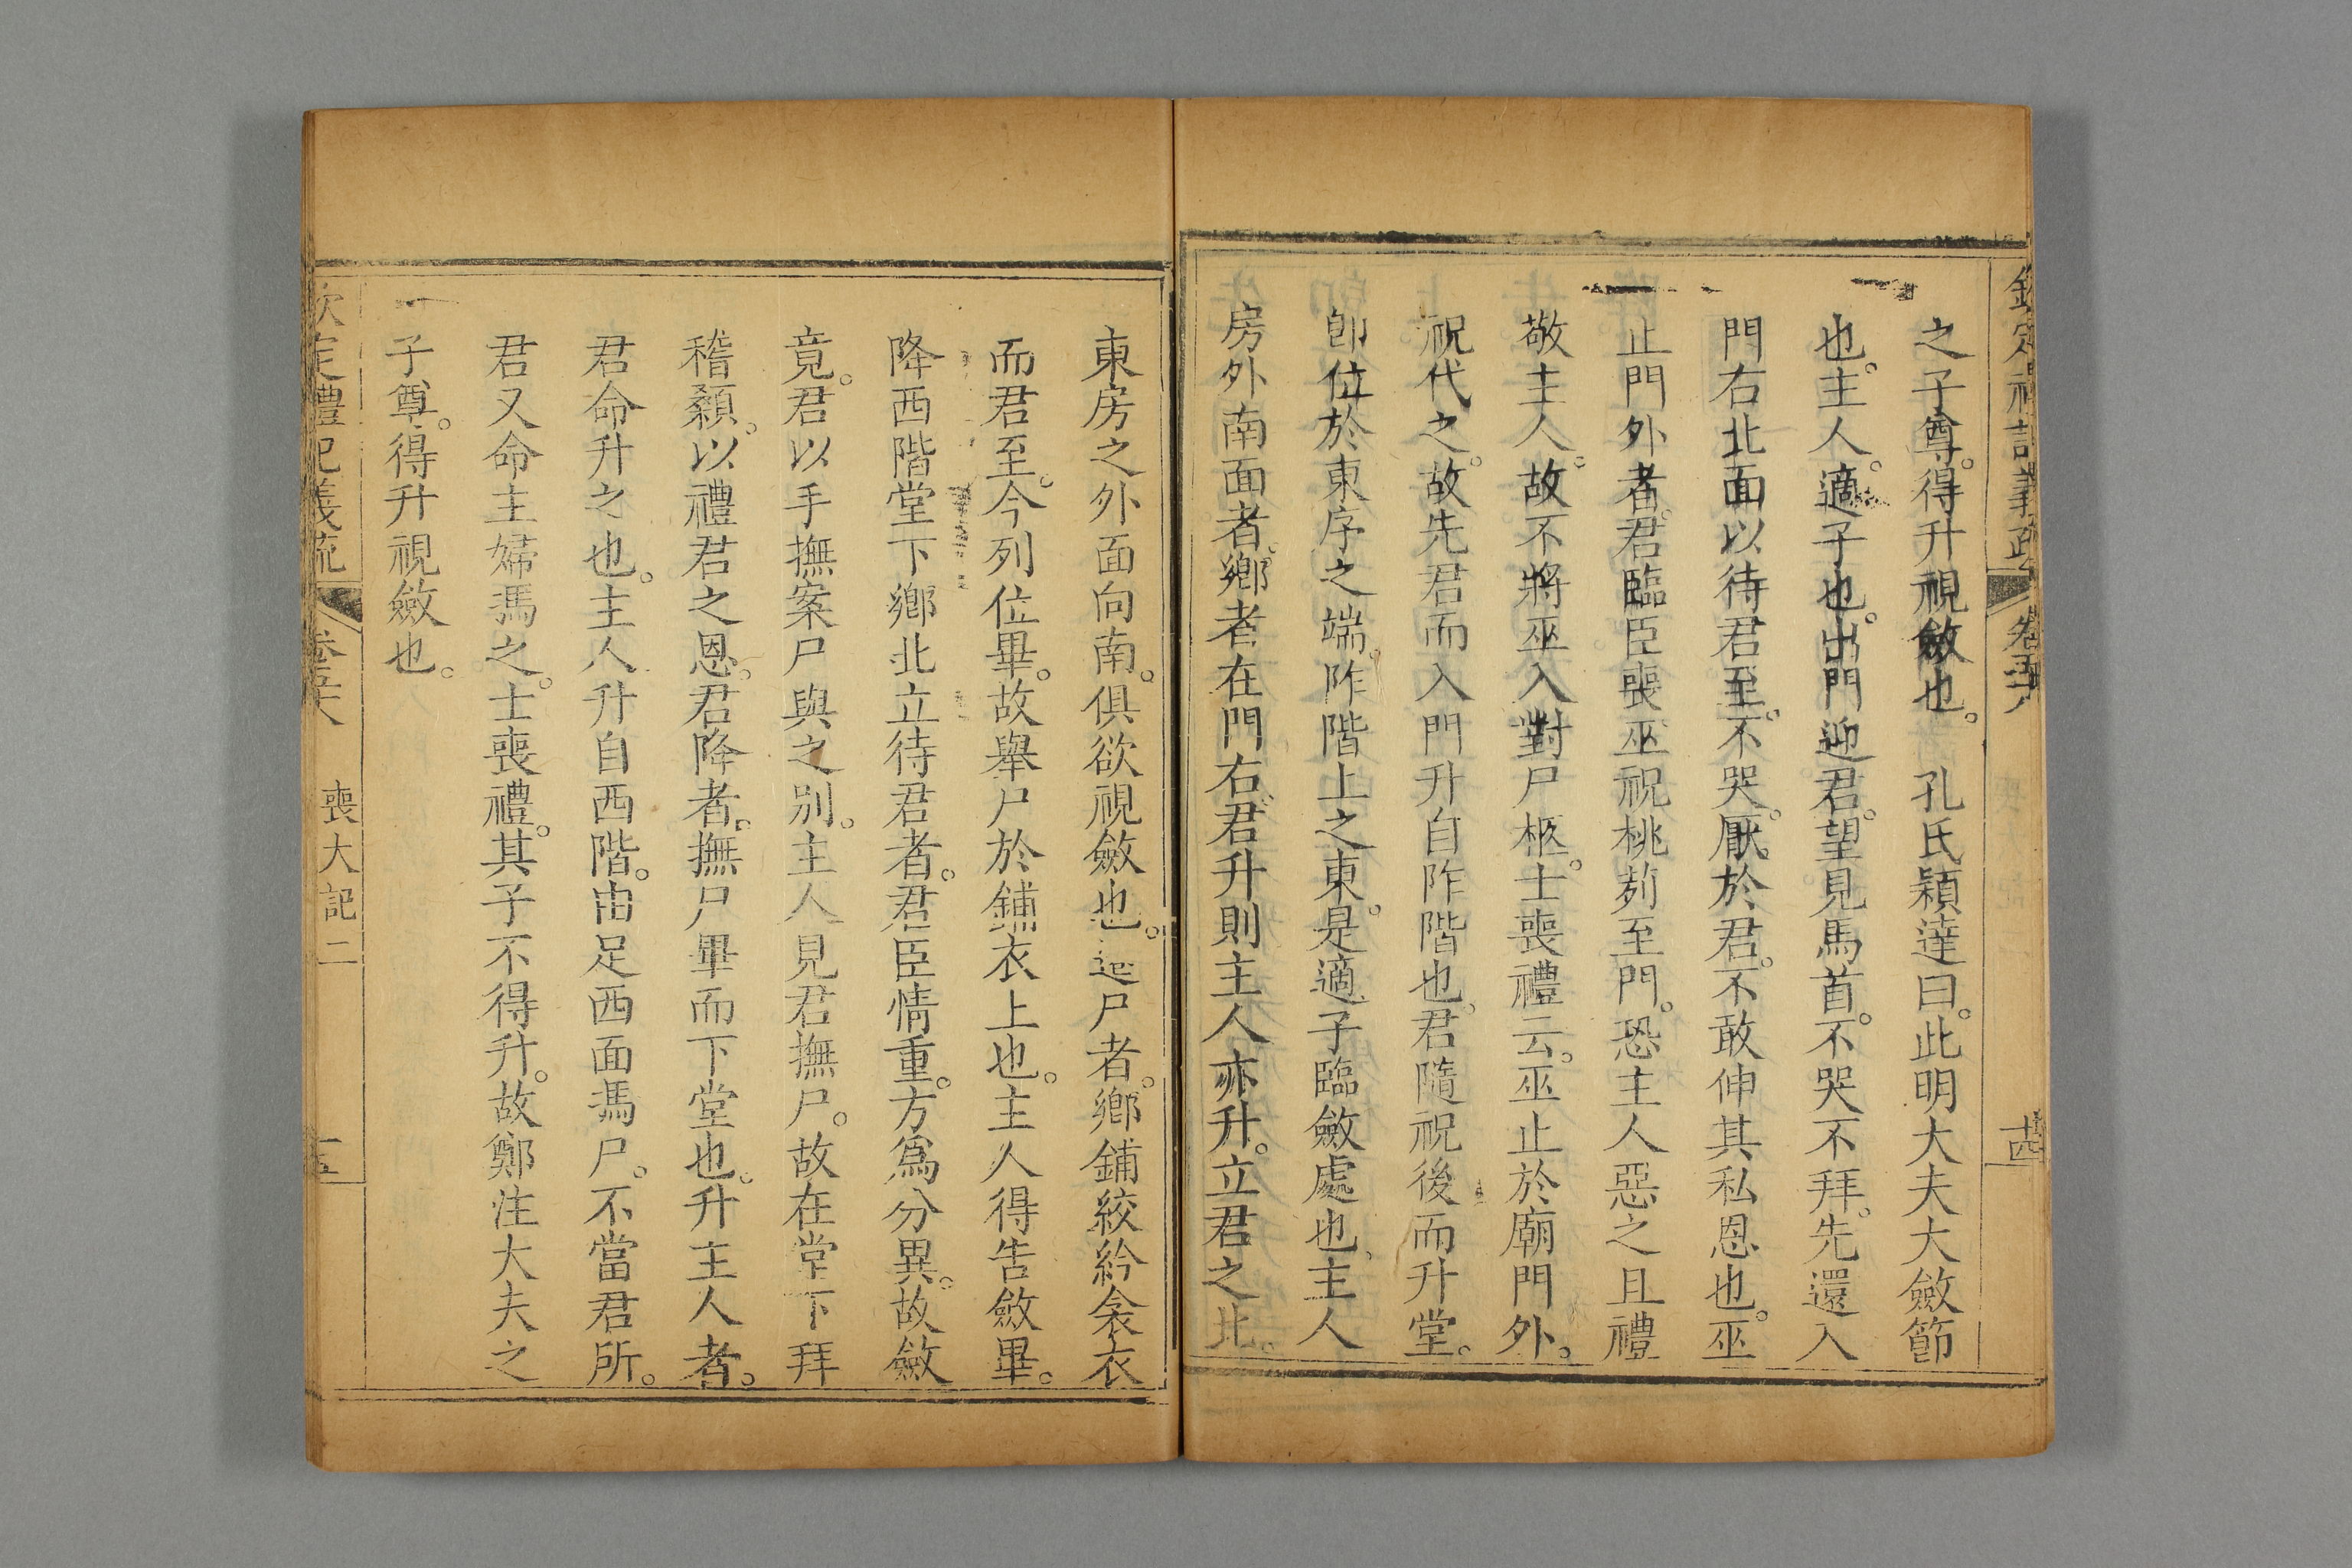 欽定禮記義疏 卷五十八 十四
之子尊。得升視斂也。 孔氏穎達曰。此明大夫大斂節
也。主人。適子也。出門迎君。望見馬首。不哭不拜。先還入
門右北面以待君至。不哭。厭於君。不敢伸其私恩也。巫
止門外者。君臨臣喪巫祝桃茢至門。恐主人惡之且禮
敬主人。故不將巫入對尸柩。士喪禮云。巫止於廟門外。
祝代之。故先君而入門升自阼階也。君隨祝後而升堂。
卽位於東序之端。阼階上之東。是適子臨斂處也。主人
房外南面者。鄉者在門右。君升則主人亦升。立君之北。
東房之外面向南。俱欲視斂也。遷尸者。鄉鋪絞紟衾衣
而君至。今列位畢。故舉尸於鋪衣上也。主人得告斂畢。
降西階堂下鄉北立待君者。君臣情重。方爲分異。故斂
竟。君以手撫案尸與之別。主人見君撫尸。故在堂下拜
稽顙。以禮君之恩。君降者。撫尸畢而下堂也。升主人者。
君命升之也。主人升自西階。由足西面馮尸。不當君所。
君又命主婦馮之。士喪禮。其子不得升。故鄭注大夫之
子尊。得升視斂也。
欽定禮記義疏 卷五十八 喪大記二